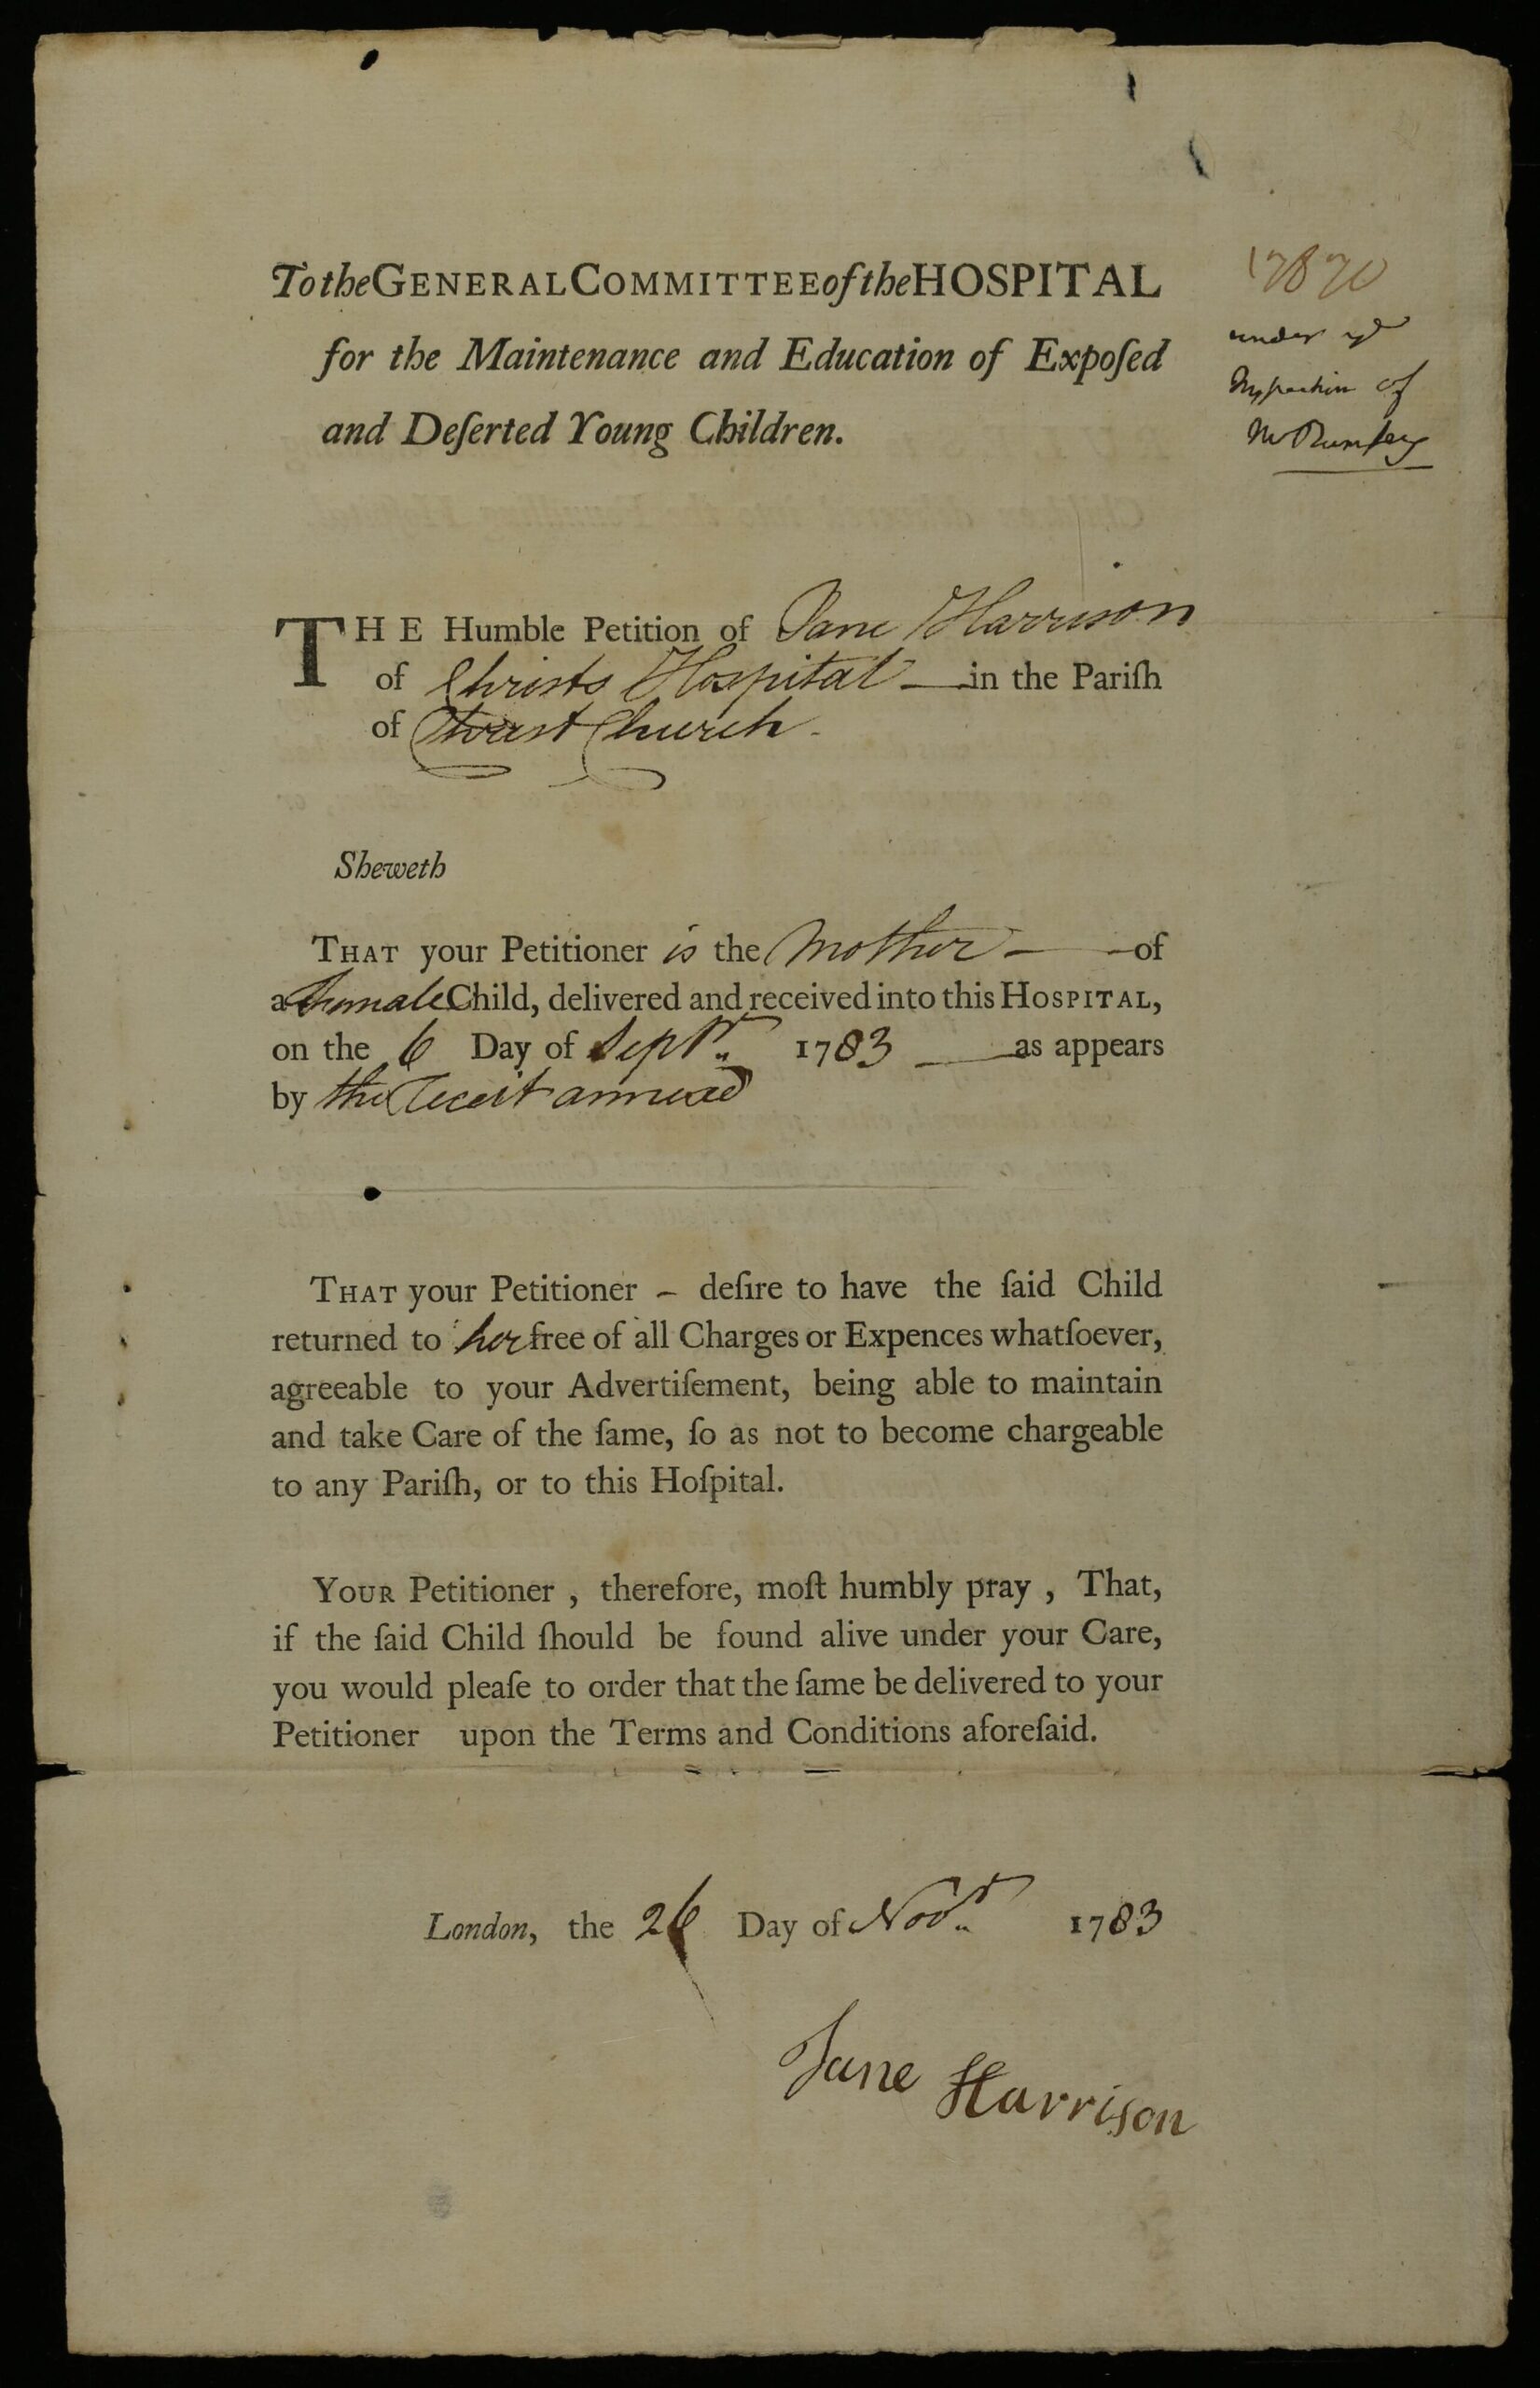 To the GENERAL COMMITTEE of the HOSPITAL
for the Maintenance and Education of Expoſed
and Deſerted Young Children.
17870
under ye
Inspection of
Mr
THE Humble Petition of Jane Harrison
of Christs Hospital — in the Pariſh
of Christ Church -
Sheweth
THAT your Petitioner is the Mother — - of
a Female Child, delivered and received into this HOSPITAL,
on the 6 Day of Septr. 1783 — as appears
by the Receit annexed
THAT your Petitioner - deſire to have the ſaid Child
returned to her free of all Charges or Expences whatſoever,
agreeable to your Advertiſement, being able to maintain
and take Care of the ſame, ſo as not to become chargeable
to any Pariſh, or to this Hoſpital.
YOUR Petitioner , therefore, moſt humbly pray , That,
if the ſaid Child ſhould be found alive under your Care,
you would pleaſe to order that the ſame be delivered to your
Petitioner upon the Terms and Conditions aforeſaid.
London, the 26 Day of Novr. 1783
Jane Harrison